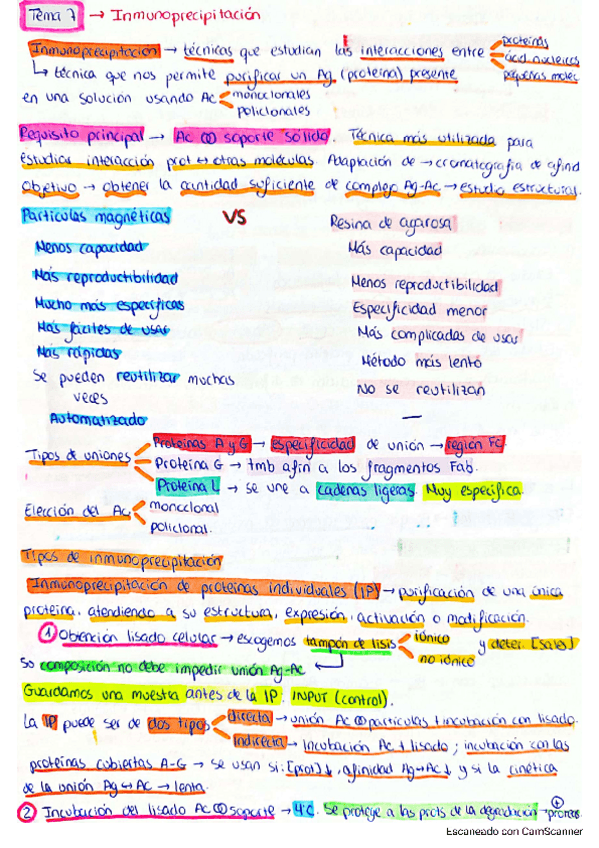 Tema 7 → Inmunoprecipitación
Inmunoprecipitación → técnicas que estudian las interacciones entre proteínas
ácid nucleicos
pequeñas molec
↳ técnica que nos permite purificar un Ag (proteína) presente
en una solución usando Ac monoclonales
policlonales
Requisito principal → Ac ꝏ soporte sólido. Técnica más utilizada para
estudiar interacción prot ↔ otras moléculas Adaptación de → cromatografía de afind
Objetivo → obtener la cantidad suficiente de complejo Ag-Ac → estudio estructural.
Partículas magnéticas VS Resina de agarosa
Menos capacidad Más capacidad
Más reproductibilidad Menos reproductibilidad
Mucho más específicas Especificidad menor
Más fáciles de usar Más complicadas de usar
Más rápidas Método más lento
Se pueden reutilizar muchas No se reutilizan
veces
Automatizado —
Tipos de uniones Proteínas A y G → especificidad de unión → región FC
Proteína G → tmb afín a los fragmentos Fab.
Proteína L → se une a cadenas ligeras. Muy específica.
Elección del Ac monoclonal
policlonal.
Tipos de inmunoprecipitación
Inmunoprecipitación de proteínas individuales (IP) → purificación de una única
proteína, atendiendo a su estructura, expresión, activación o modificación.
① Obtención lisado celular → escogemos tampón de lisis iónico y deter. [sales]
no iónico
Su composición no debe impedir unión Ag-Ac
Guardamos una muestra antes de la IP. INPUT (control).
La IP puede ser de dos tipos directa → unión Ac ꝏ partículas + incubación con lisado.
indirecta → Incubación Ac + lisado ; incubación con las
proteínas cubiertas A-G → se usan si: [prot]↓, afinidad Ag↔Ac↓ y si la cinética
de la unión Ag↔Ac → lenta.
② Incubación del lisado Ac ꝏ soporte → 4°C. Se protege a las prots de la degradación →
Escaneado con CamScanner